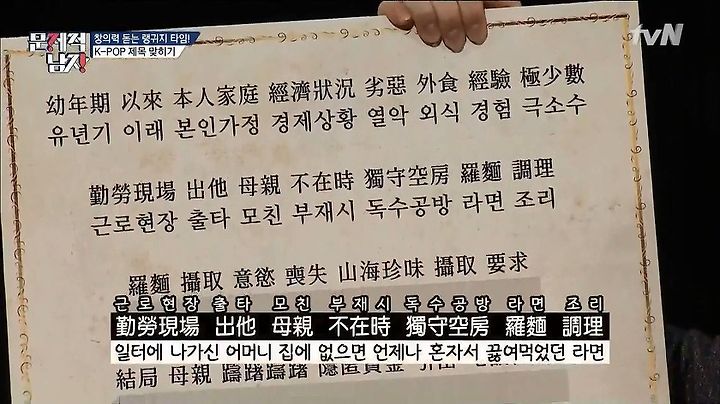 문제적 남자
창의력 돋는 랭귀지 타임!
K-POP 제목 맞히기
tvN
幼年期 以來 本人家庭 經濟狀況 劣惡 外食 經驗 極少數
유년기 이래 본인가정 경제상황 열악 외식 경험 극소수
勤勞現場 出他 母親 不在時 獨守空房 羅麵 調理
근로현장 출타 모친 부재시 독수공방 라면 조리
羅麵 攝取 意慾 喪失 山海珍味 攝取 要求
근로현장 출타 모친 부재시 독수공방 라면 조리
勤勞現場 出他 母親 不在時 獨守空房 羅麵 調理
일터에 나가신 어머니 집에 없으면 언제나 혼자서 끓여먹었던 라면
結局 母親 躊躇躊躇 隱匿資金